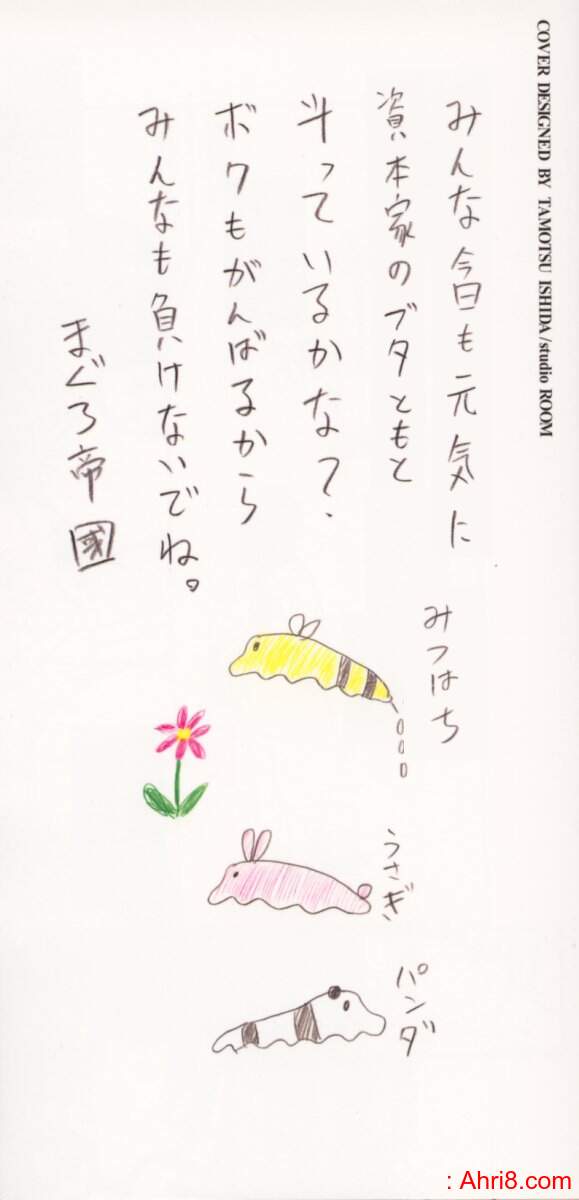 COVER DESIGNED BY TAMOTSU ISHIDA/studio ROOM
みんな今日も元気に
資本家のブタともと
斗っているかな?
ボクもがんばるから
みんなも負けないでね。
まぐろ帝國
みつはち
うさぎ
パンダ
: Ahri8.com